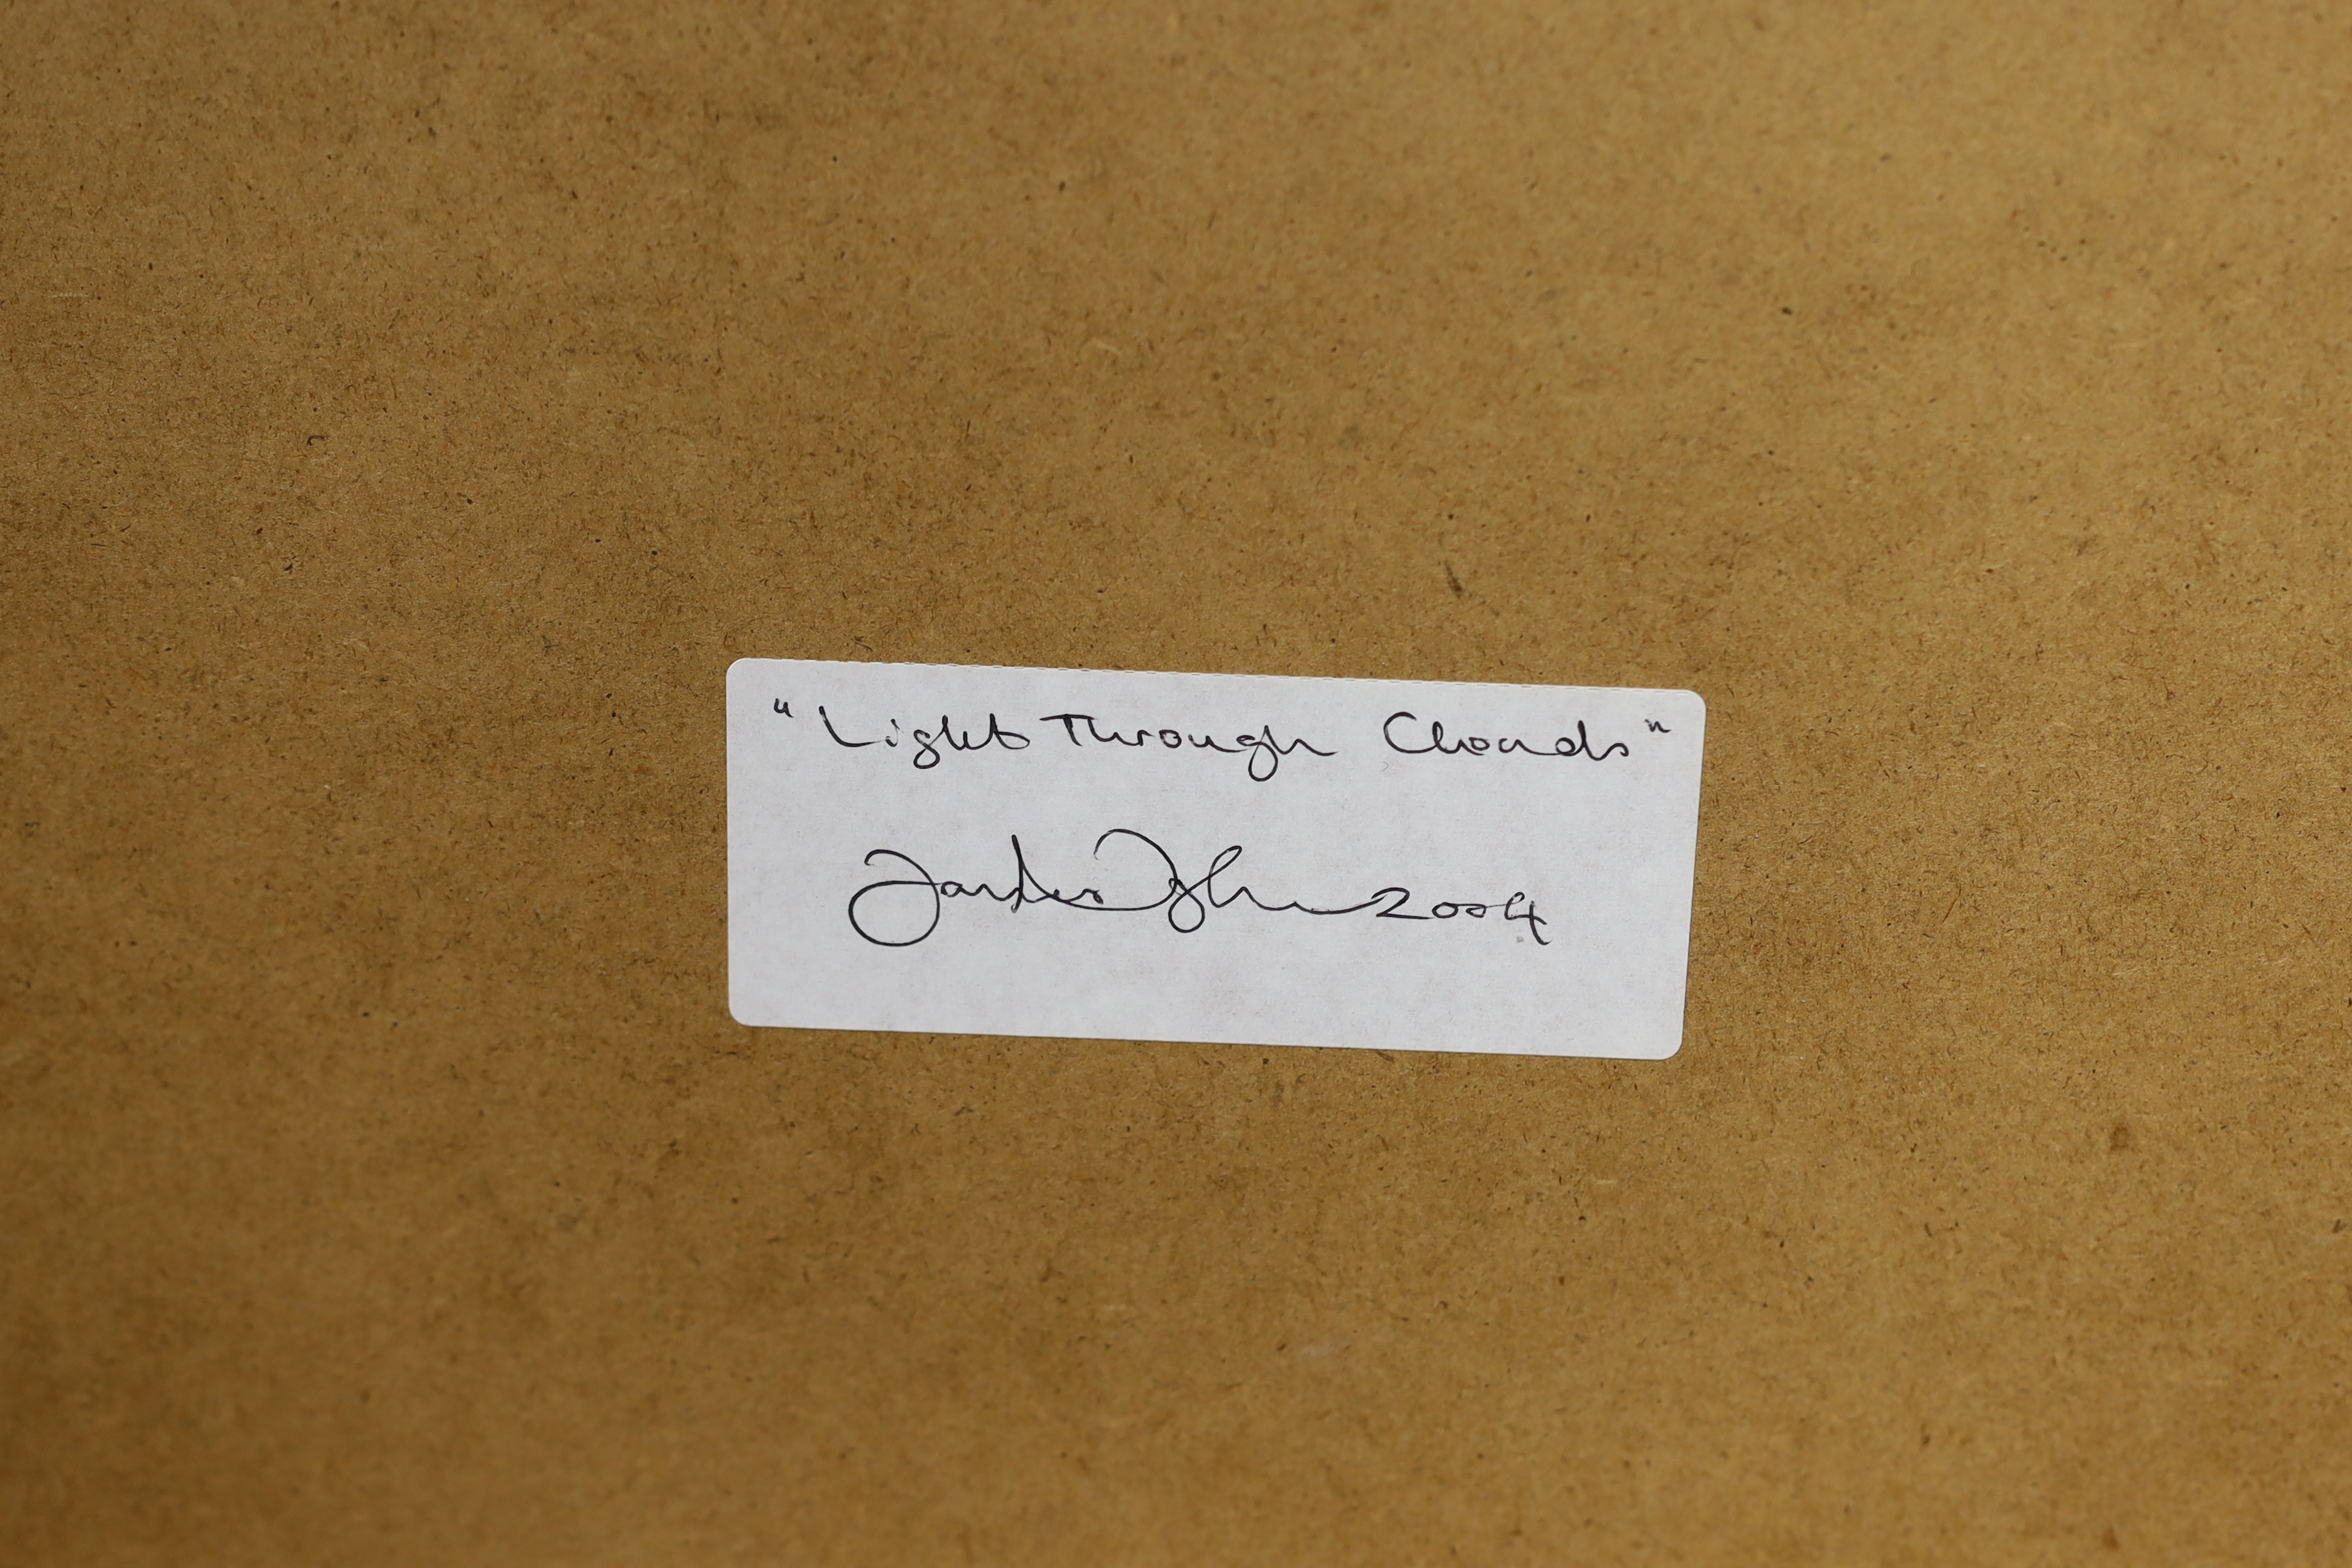 "Light Through Clouds"
2004